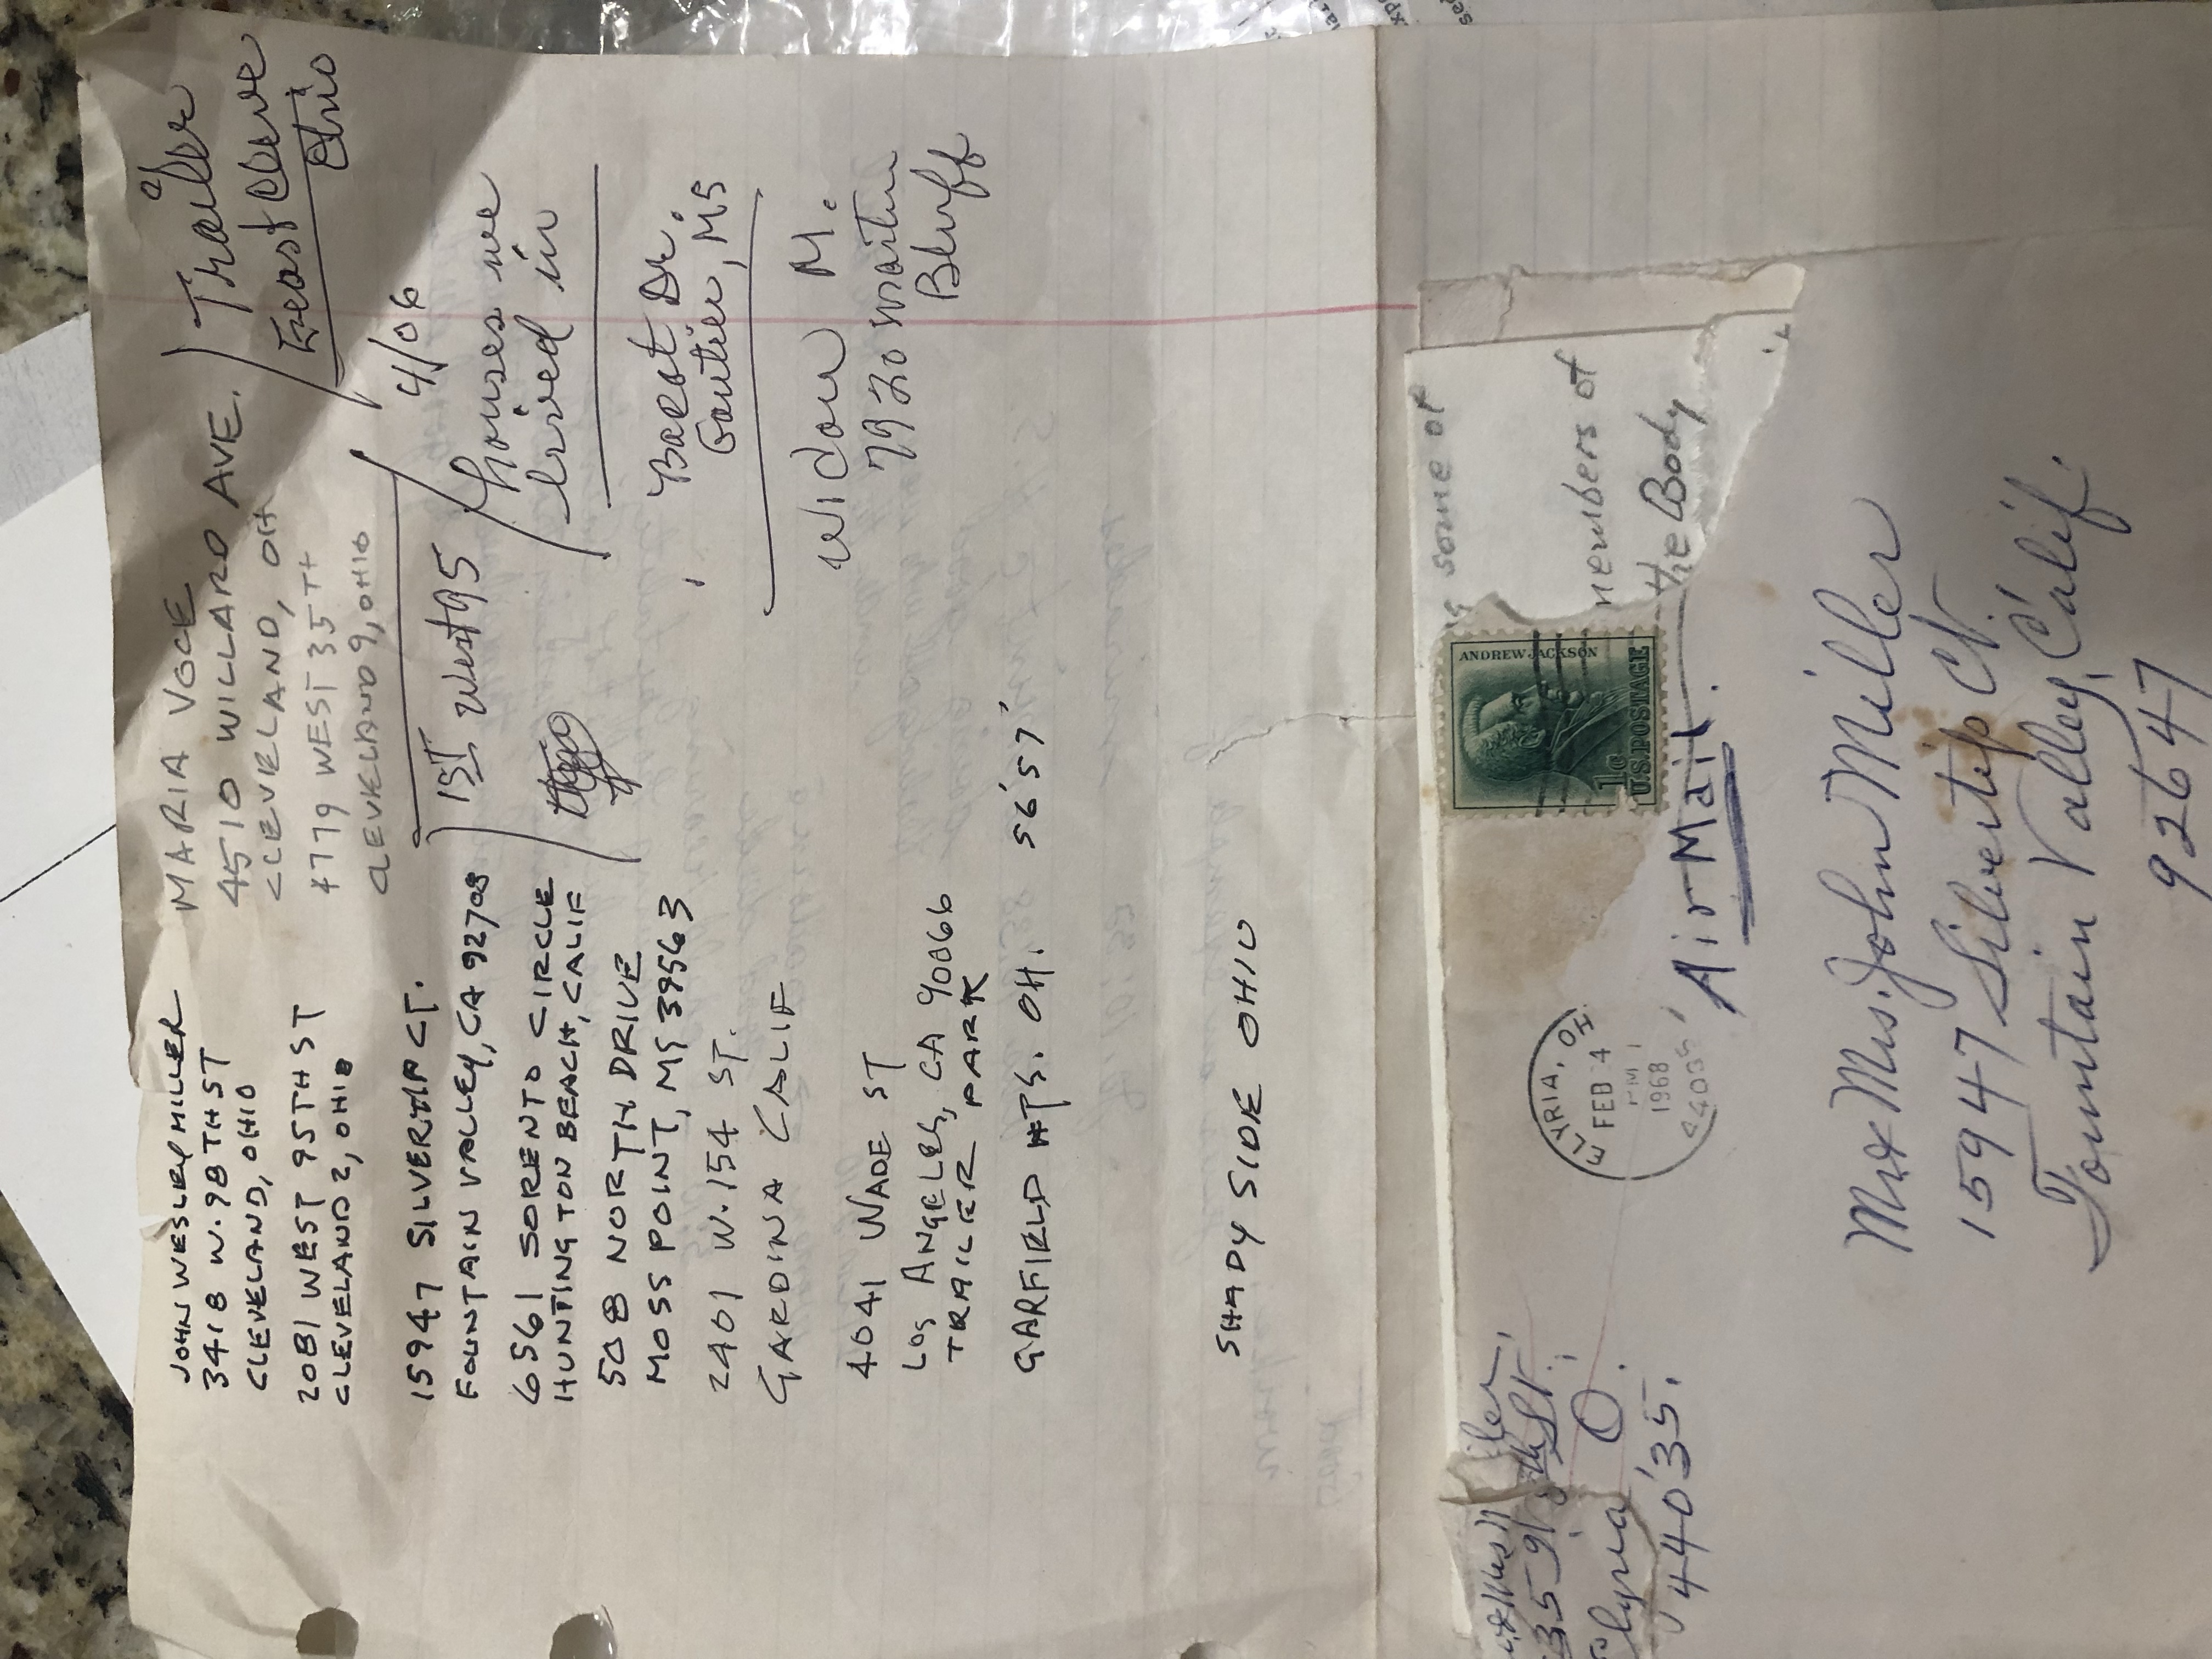 JOHN WESLEY MILLER
3418 W. 98TH ST
CLEVELAND, OHIO
2081 WEST 95TH ST
CLEVELAND 2, OHIO
15947 SILVERTIP CT.
FOUNTAIN VALLEY, CA 92708
6561 SORENTO CIRCLE
HUNTINGTON BEACH, CALIF
508 NORTH DRIVE
MOSS POINT, MS 39563
2401 W. 154 ST.
GARDINA CALIF
4041 WADE ST
LOS ANGELES, CA 90066
TRAILER PARK
GARFIELD HTS. OH. 56'57'
SHADY SIDE OHIO
MARIA VOCE
4510 WILLARD AVE.
CLEVELAND, OH
4779 WEST 35TH
CLEVELAND 9, OHIO
1ST West 95
Trailer
East
Ohio
4/06
houses we
lived in
Bacot Dr.
Gautier, MS
Widow M.
7920 Martin
Bluff
some of
members of
the Body
ANDREW JACKSON
1c
U.S. POSTAGE
Air Mail.
ELYRIA, OH
FEB 4
PM
1968
44035
St.
O.
44035.
Mr & Mrs. John Miller
15947 Silvertip Ct.
Fountain Valley, Calif.
92647